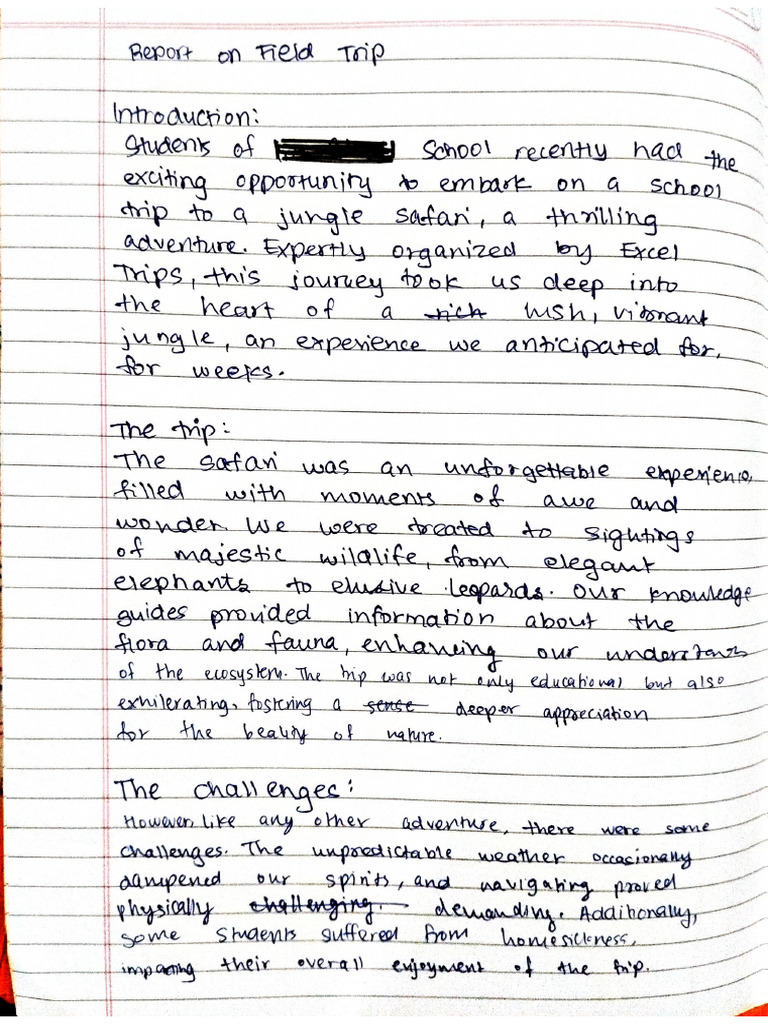 Report on Field Trip
Introduction:
Students of School recently had the
exciting opportunity to embark on a school
trip to a jungle safari, a thrilling
adventure. Expertly organized by Excel
Trips, this journey took us deep into
the heart of a rich lush, vibrant
jungle, an experience we anticipated for,
for weeks.
The trip:
The safari was an unforgettable experience,
filled with moments of awe and
wonder. We were treated to sightings
of majestic wildlife, from elegant
elephants to elusive leopards. Our knowledge
guides provided information about the
flora and fauna, enhancing our
of the ecosystem. The trip was not only educational but also
exhilerating, fostering a sense deeper appreciation
for the beauty of nature.
The challenges:
However, like any other adventure, there were some
challenges. The unpredictable weather occasionally
dampened our spirits, and navigating proved
physically challenging. demanding. Additionally,
some students suffered from homesickness,
impacting their overall enjoyment of the trip.